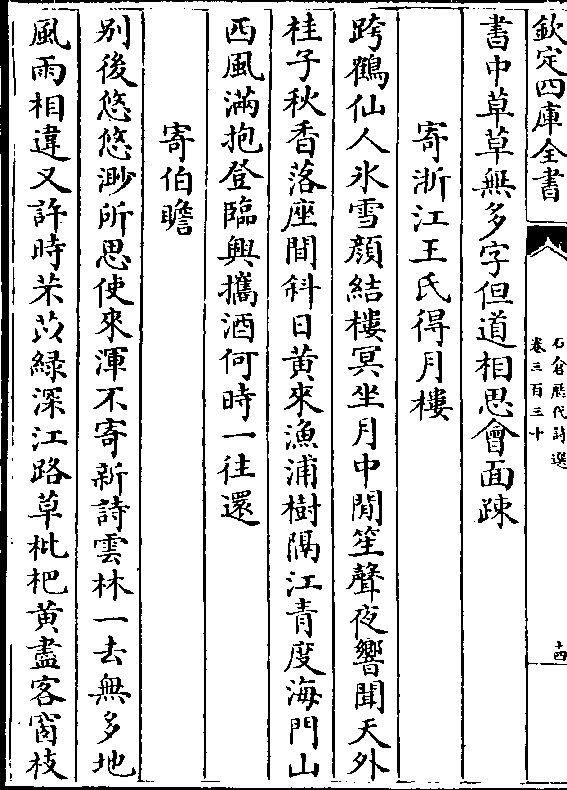 欽定四庫全書
石倉歷代詩選
卷三百三十
十四
書中草草無多字但道相思會面踈
寄浙江王氏得月樓
跨鶴仙人氷雪顔結樓冥坐月中閒笙聲夜響聞天外
桂子秋香落座間斜日黄來漁浦樹隔江青度海門山
西風滿抱登臨興攜酒何時一往還
寄伯瞻
别後悠悠渺所思使來渾不寄新詩雲林一去無多地
風雨相違又許時苤苡緑深江路草枇杷黄盡客窗枝